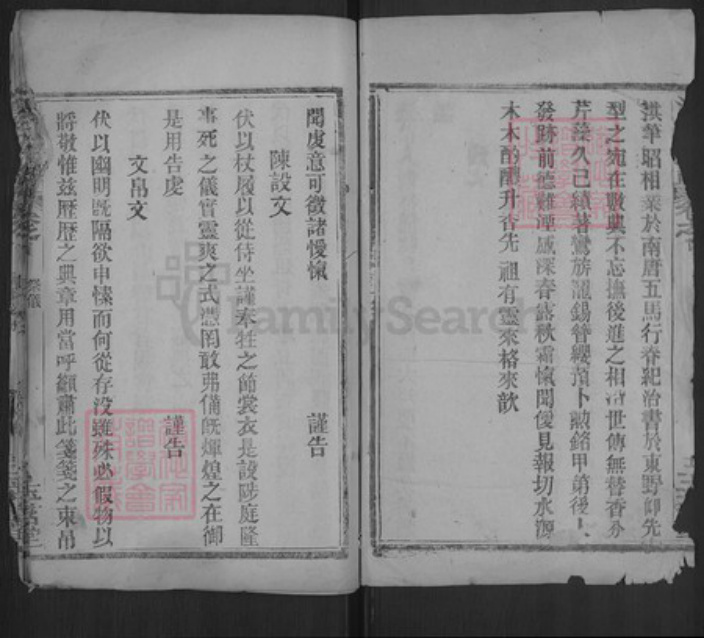 洪筆昭相業於南唐五馬行春紀治書於東野仰先
型之宛在歌典不忘撫後進之相治世傳無替香分
芹泮久已績著鴛旂龍錫簪纓預卜勳銘甲第後人
發跡前德難湮感深春露秋霜愾聞僾見報切水源
木本酌醴升香先祖有靈來格來歆
聞虔意可徵諸慢愾 謹告
陳設文
伏以杖履以從侍坐謹奉牲之節裳衣是設陟庭隆
事死之儀實靈爽之式憑罔敢弗備旣煇煌之在御
是用告虔 謹告
文帛文
伏以幽明旣隔欲申愫而何從存没雖殊必假物以
將敬惟兹歷歷之典章用當呼籲肅此箋箋之束帛
祭儀
FamilySearch